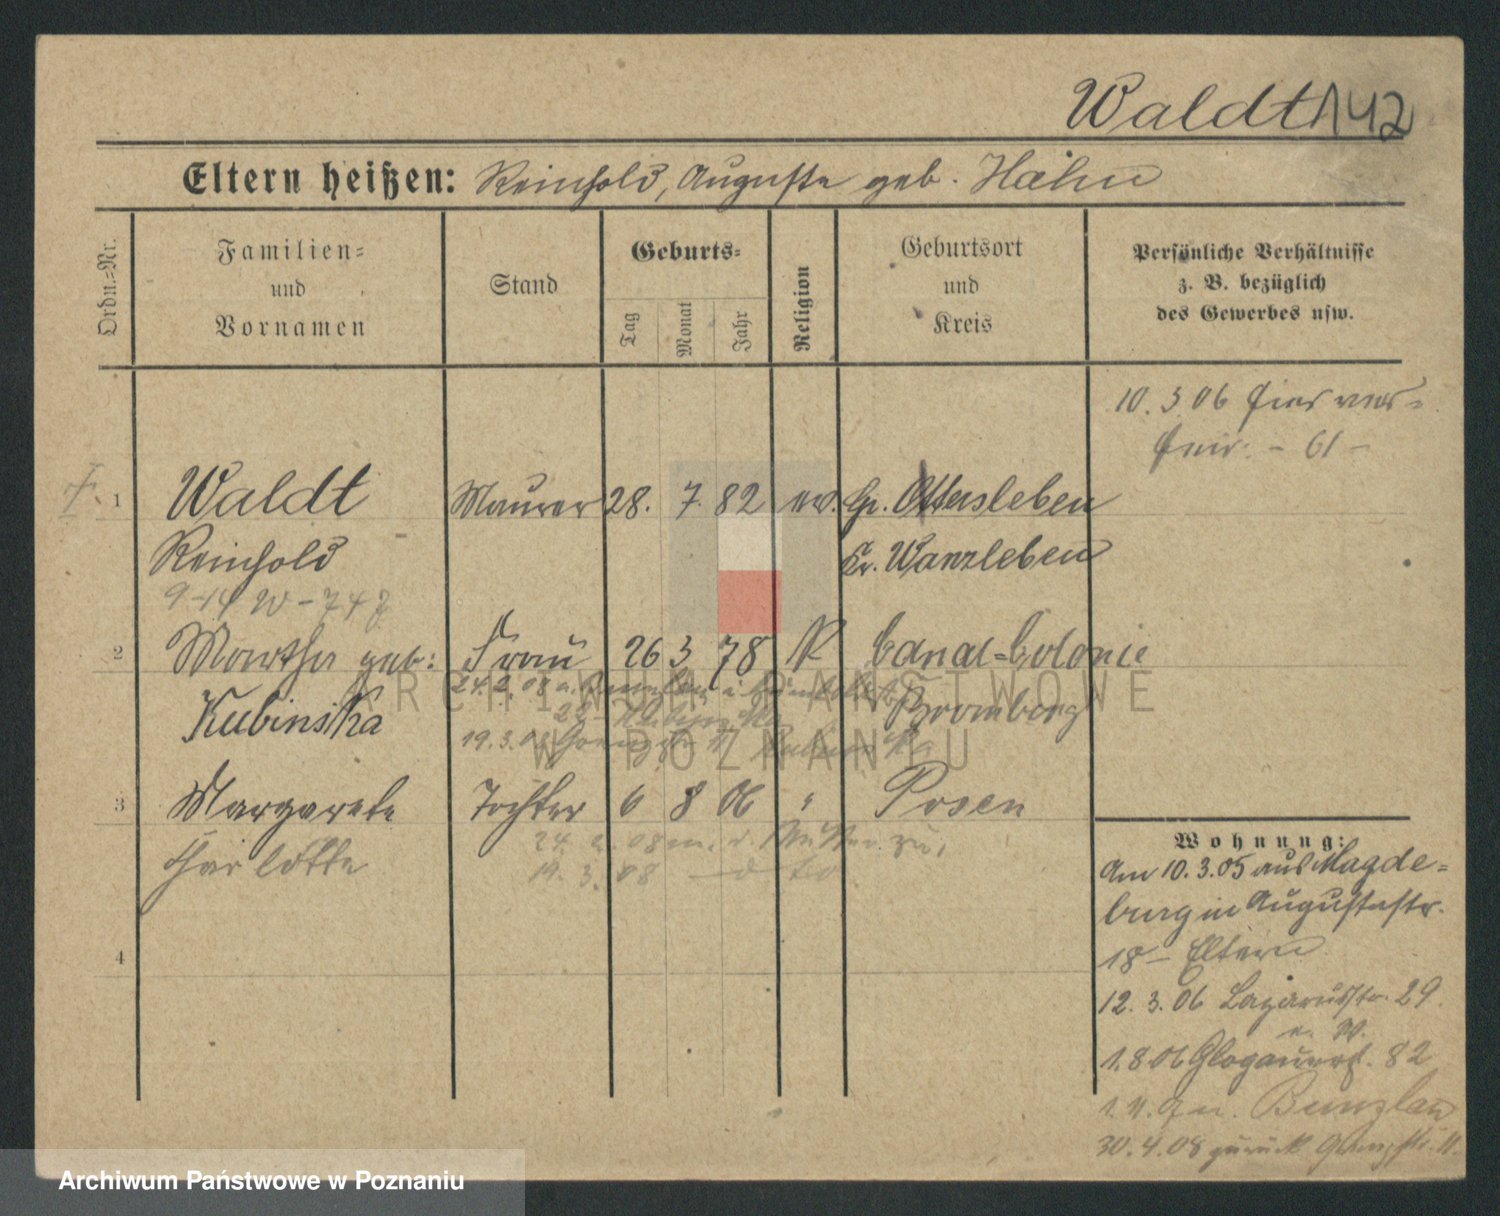 Waldt 142
Eltern heißen: Reinhold, Auguste geb. Hahn
Ordn.=Nr.
Familien=
und
Vornamen
Stand
Geburts=
Tag
Monat
Jahr
Religion
Geburtsort
und
Kreis
Persönliche Verhältnisse
z. B. bezüglich
des Gewerbes usw.
10. 3 06 hier ver=
heir. - 61 -
1 Waldt Maurer 28. 7. 82 ev. Gr. Ottersleben
Reinhold Kr. Wanzleben
2 Martha geb: Frau 26 3 78 K Canal=Colonie
24. 2. 08
Kubinska Bromberg
19. 3. 08
3 Margarete Tochter 6 8 06 " Posen
Charlotte 24. 2. 08 m. d. Mutter zu.
19. 3. 08
4
Wohnung:
Am 10. 3. 05 aus Magde=
burg in Augustastr.
18 - Eltern
12. 3. 06 Lazarusstr. 29
1. 8 06 Glogauerst. 82
Bunzlau
30. 4. 08 zurück
ARCHIWUM PAŃSTWOWE
W POZNANIU
Archiwum Państwowe w Poznaniu